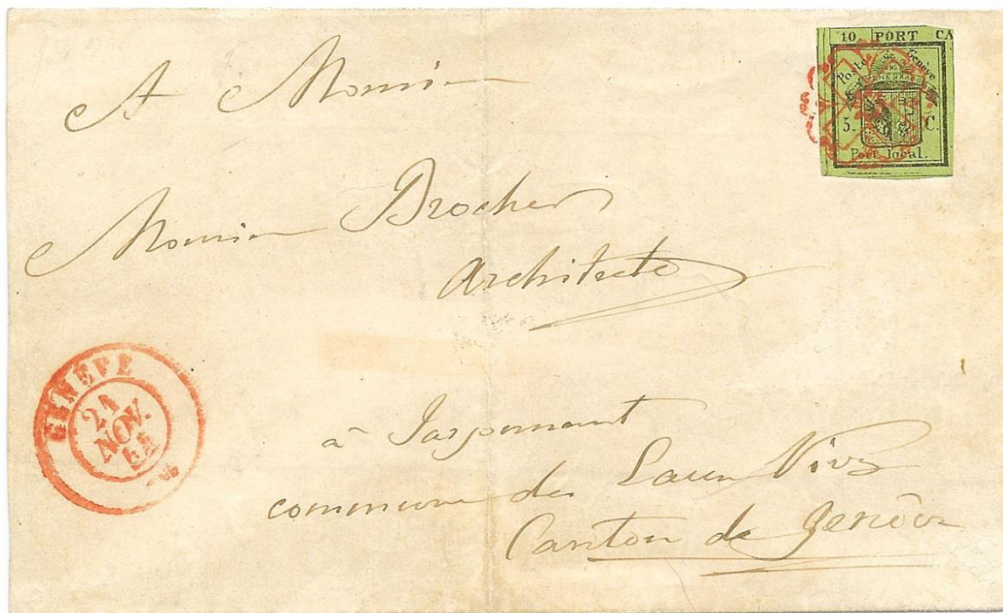 10. PORT CA
Poste de Genève
5. C.
Port local.
A Monsieur
Monsieur Brocher
Architecte
GENÈVE
21
NOV.
à Jargonnant
commune des Eaux Vives
Canton de Genève